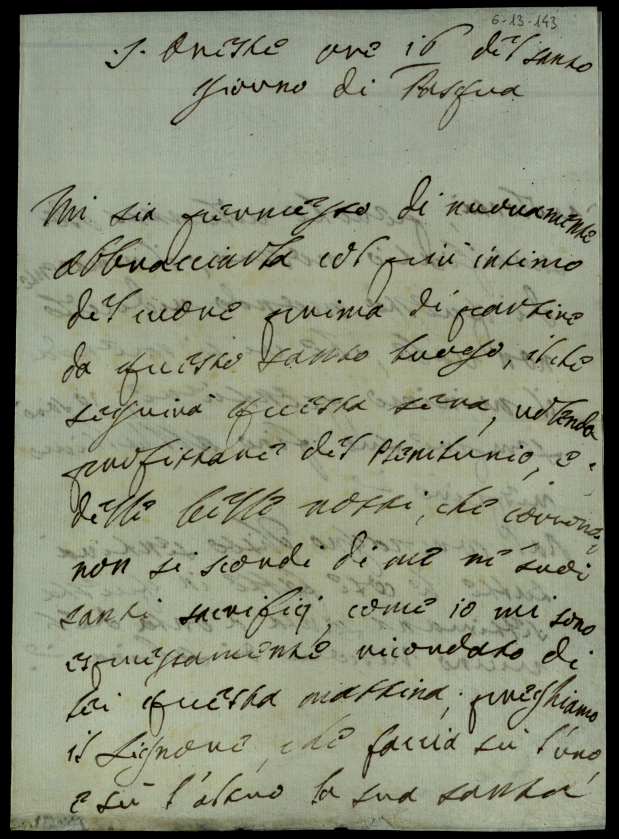 6-13-143
S. Oreste ore 16 del santo
giorno di Pasqua
Mi sia permesso di nuovamente
abbracciarla col più intimo
del cuore prima di partire
da questo santo luogo, il che
seguirà questa sera, volendo
profittare del Plenilunio, e
delle belle notti, che corrono;
non si scordi di me ne' suoi
santi sacrifici, come io mi sono
espressamente ricordato di
lei questa mattina; preghiamo
il Signore, che faccia su l'uno,
e su l'altro la sua santa